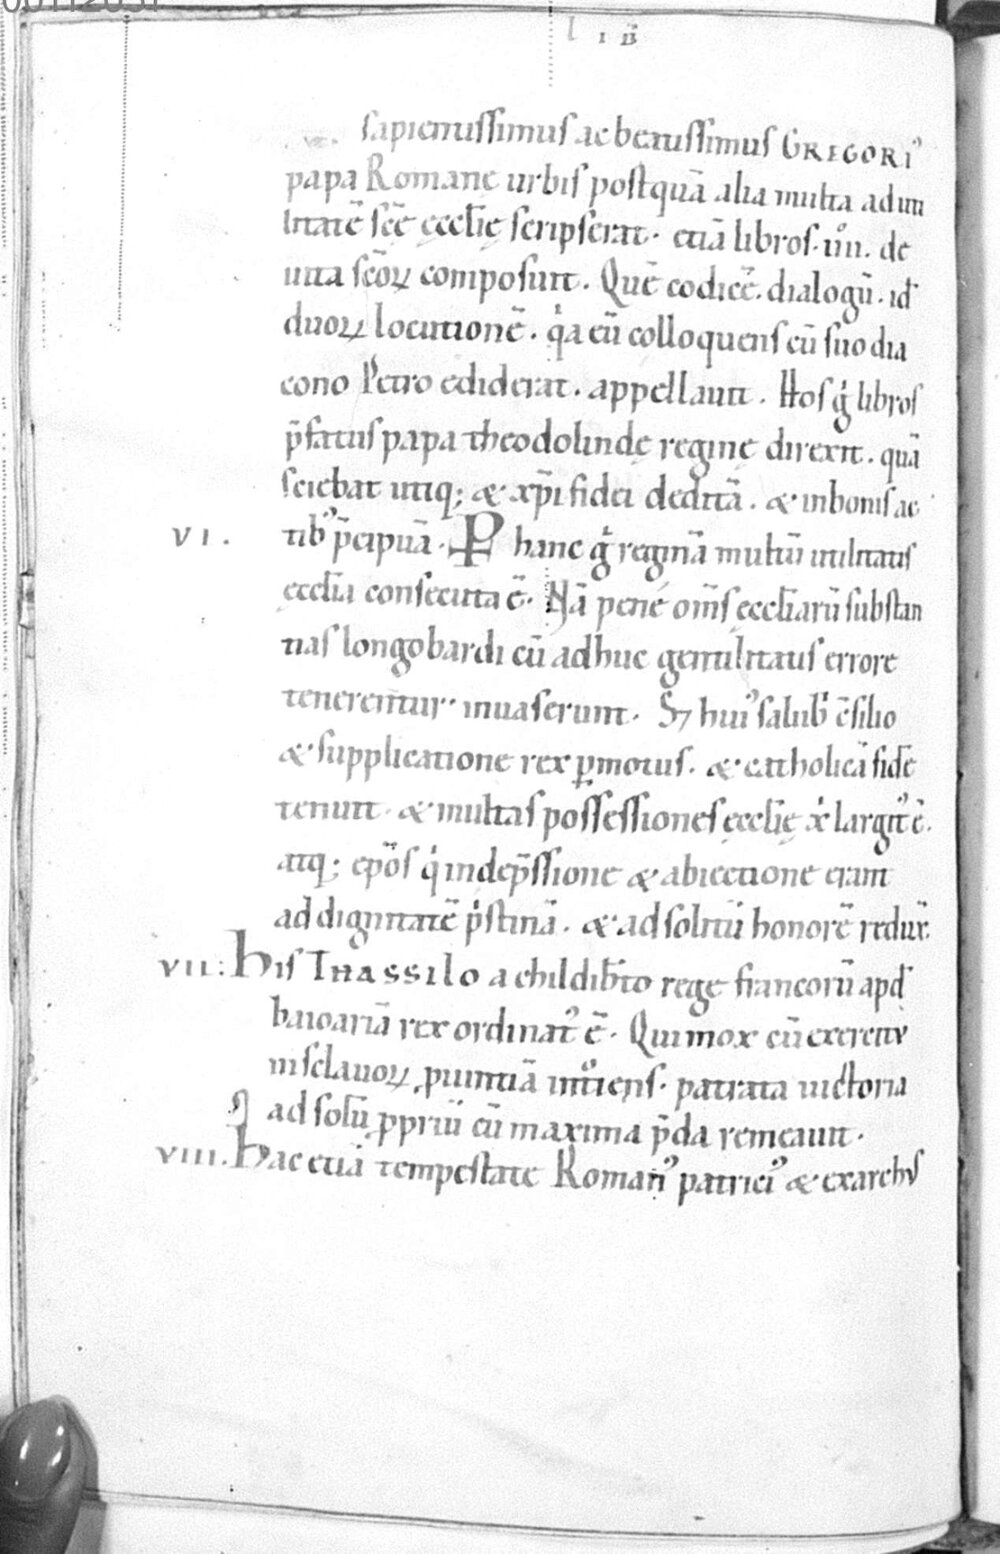 LIB̅
sapientissimus ac beatissimus GREGORI᾽
papa Romanę urbis postquā alia multa ad uti
litatē scę̄ ecclię̄ scripserat. etiā libros .iiii. de
uita scōꝝ composuit. Quē codicē. dialogū. id̄
duoꝝ locutionē. qͥa cū colloquens cū suo dia
cono Petro ediderat. appellauit. Hos gͥ libros
p̄fatus papa theodolindę reginę direxit. quā
sciebat utiq; & xp̄i fidei deditā. & in bonis ac
VI. tib᾽ p̄cipuā. P hanc gͦ reginā multū utilitatis
ęccl̄ia consecuta ē. Nā pene om̄s ęccl̄iarū substan
tias longobardi cū adhuc gentilitatis errore
tenerentur. inuaserunt. S; hui᾽ salubͥ c̄silio
& supplicatione rex ꝑmotus. & catholicā fidē
tenuit. & multas possessiones ęccl̄ię xͥ largit᾽ ē.
atq; ep̄os qͥ in dep̄ssione & abiectione erant
ad dignitatē pͥstinā. & ad solitū honorē redux̄.
VII: His Tnassilo a childib̄to rege francorū apd̄
baioariā rex ordinat᾽ ē. Qui mox cū exercitu
in sclauoꝝ ꝓuintiā introiens. patrata uictoria
ad solū ꝓpriū cū maxima p̄da remeauit.
VIII. Hac etiā tempestate Roman᾽ patrici᾽ & exarchus